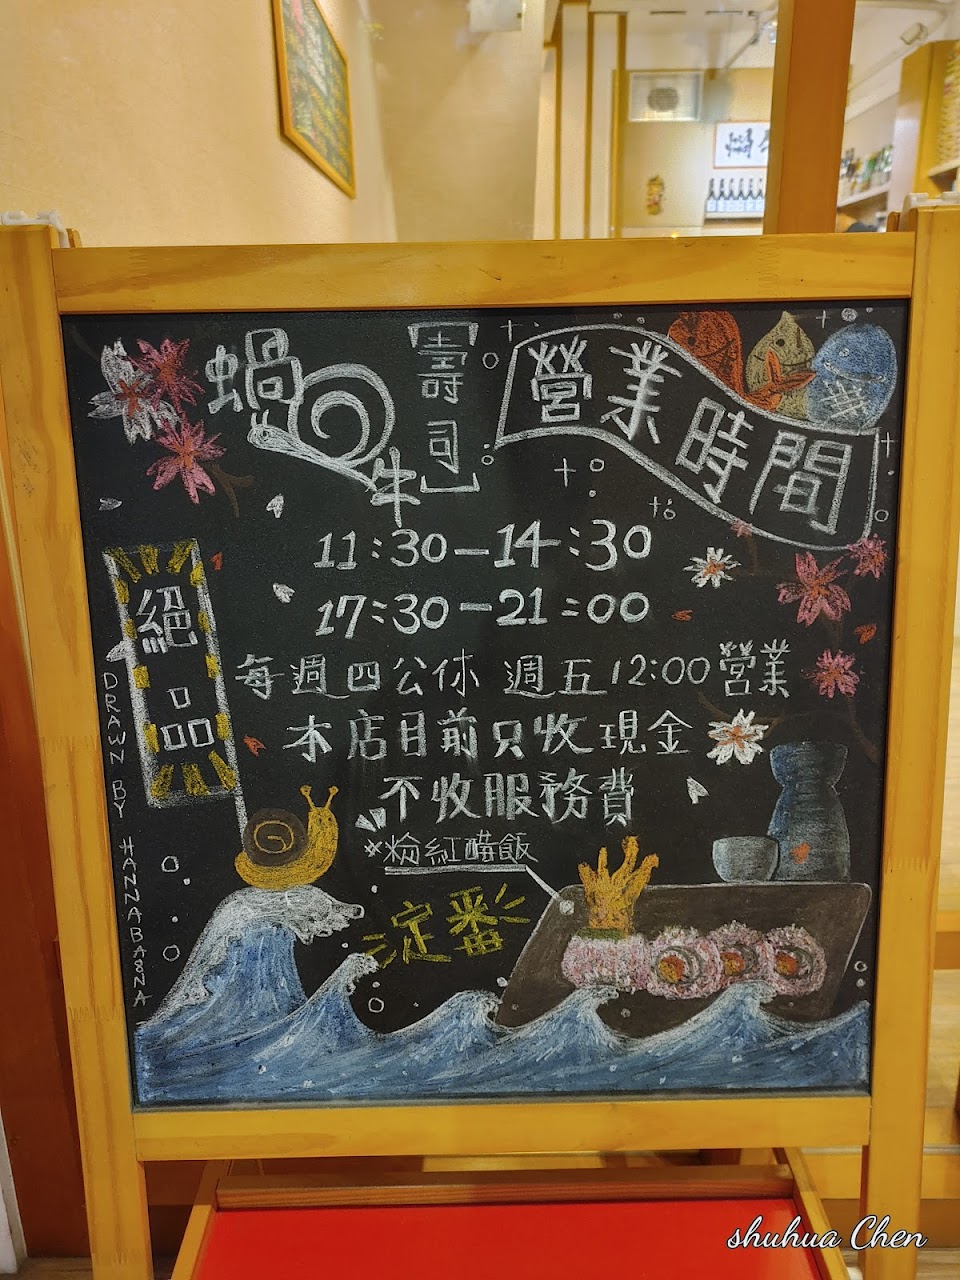 蝸牛
壽司
營業時間
11:30-14:30
17:30-21:00
每週四公休 週五12:00營業
本店目前只收現金
不收服務費
※粉紅醋飯
淀番
絕品
DRAWN BY HANNABA8NA
shuhua Chen